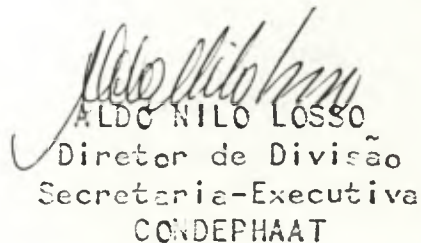 Aldo Nilo Losso
ALDO NILO LOSSO
Diretor de Divisão
Secretaria-Executiva
CONDEPHAAT